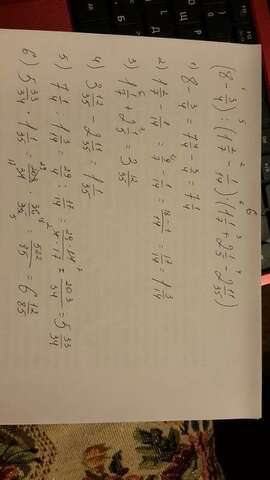 (8 - 3/4) : (1 2/7 - 1/14) (1 1/7 + 2 1/5 - 2 11/35)
1) 8 - 3/4 = 7 4/4 - 3/4 = 7 1/4
2) 1 2/7 - 1/14 = 9/7 - 1/14 = = 17/14 = 1 3/14
3) 1 1/7 + 2 1/5 = 3 12/35
4) 3 12/35 - 2 11/35 = 1 1/35
5) 7 1/4 : 1 3/14 = 29/4 : 17/14 = = 203/34 = 5 33/34
6) 5 33/34 · 1 1/35 = 203/34 · 36/35 = = 6 12/85